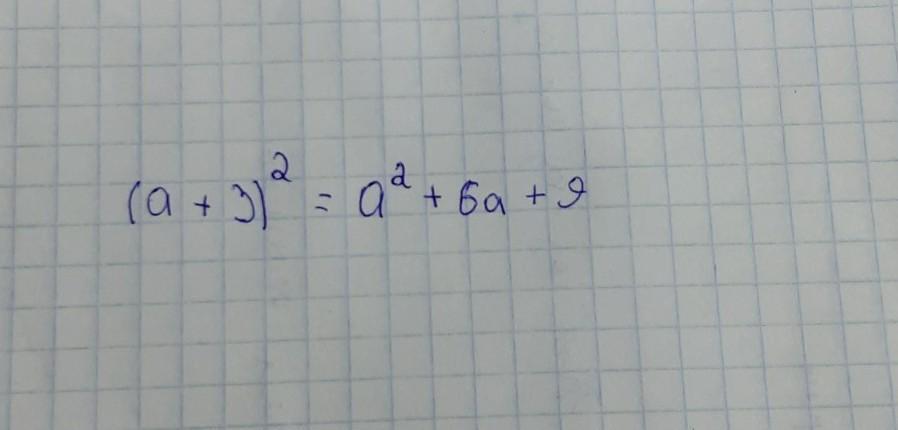 (a + 3)² = a² + 6a + 9